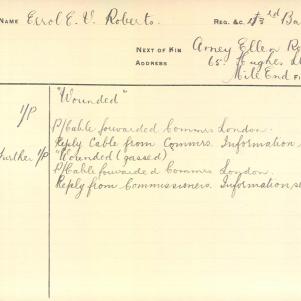 NAME Errol E. V. Roberts. REG. &C. 43rd B
NEXT OF KIN Amey Ellen Ro
ADDRESS 65 Hughes St
Mile End
"Wounded"
I/P
P/Cable forwarded Commrs London.
Reply Cable from Commrs. Information
Further I/P "Wounded (gassed)
P/Cable forwarded Commrs London.
Reply from Commissioners. Information se